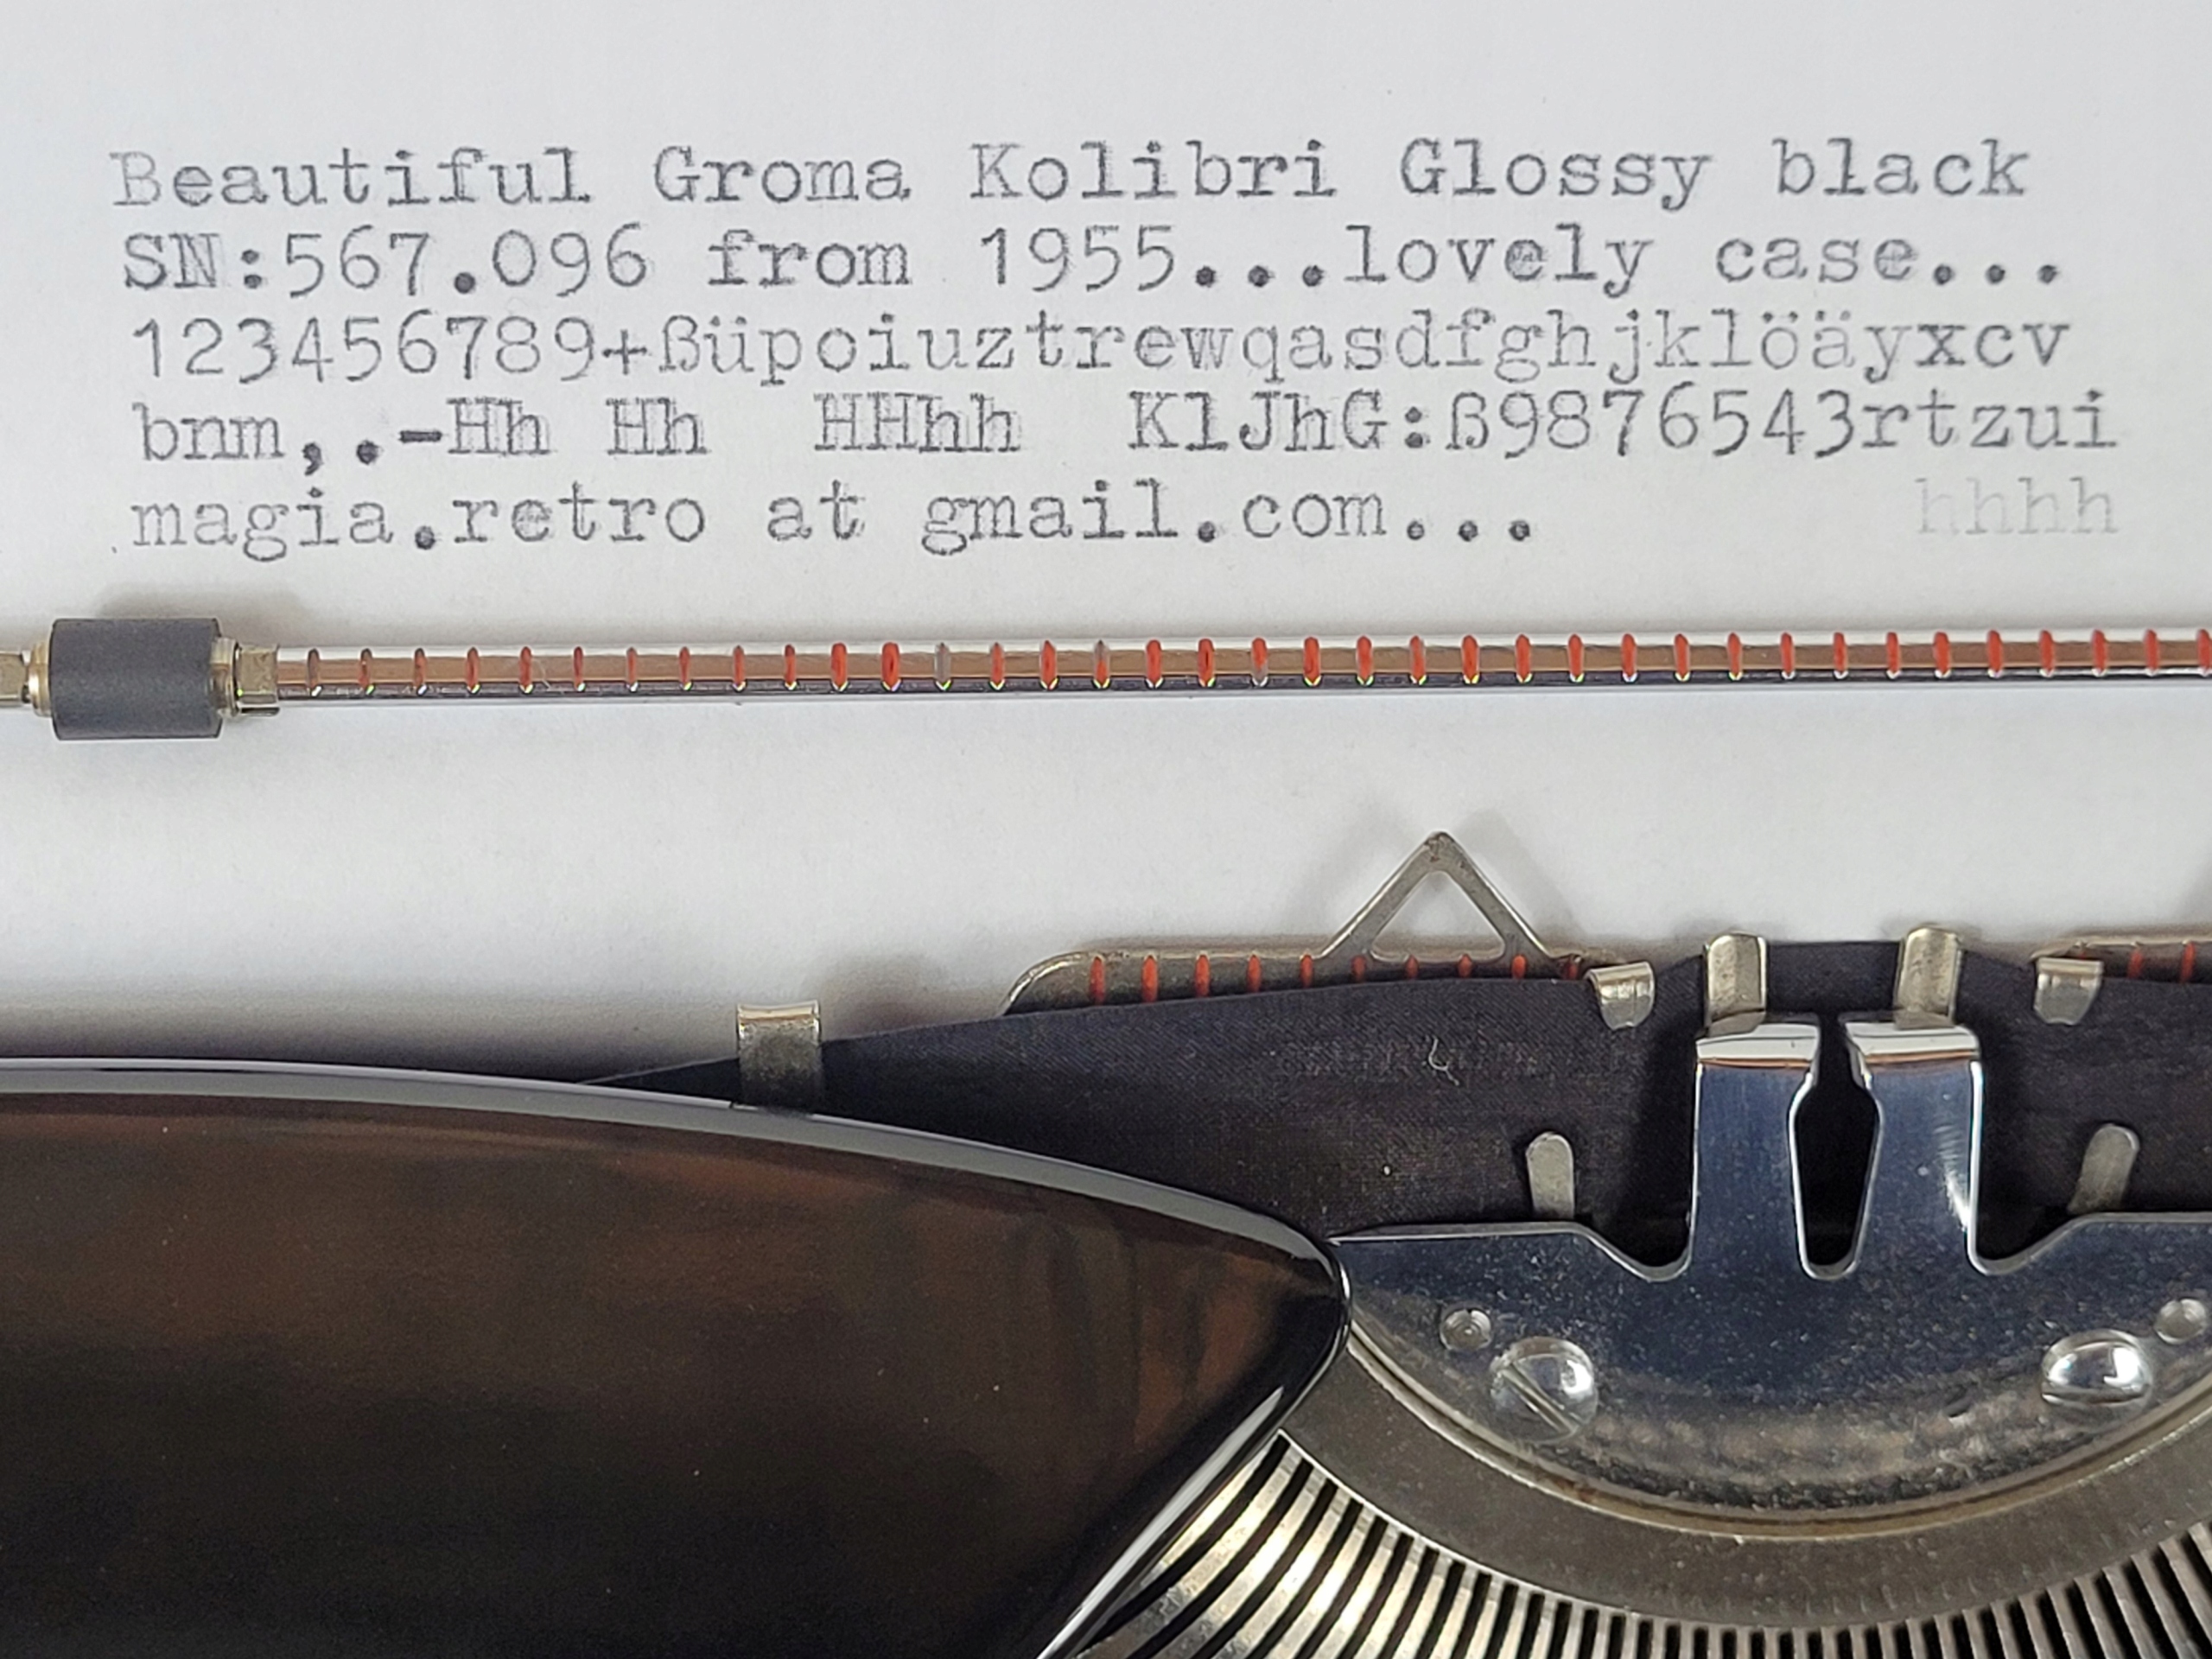 Beautiful Groma Kolibri Glossy black
SN:567.096 from 1955...lovely case...
123456789+ßüpoiuztrewqasdfghjklöäyxcv
bnm,.-Hh Hh  HHhh  KlJhG:ß9876543rtzui
magia.retro at gmail.com...       hhhh